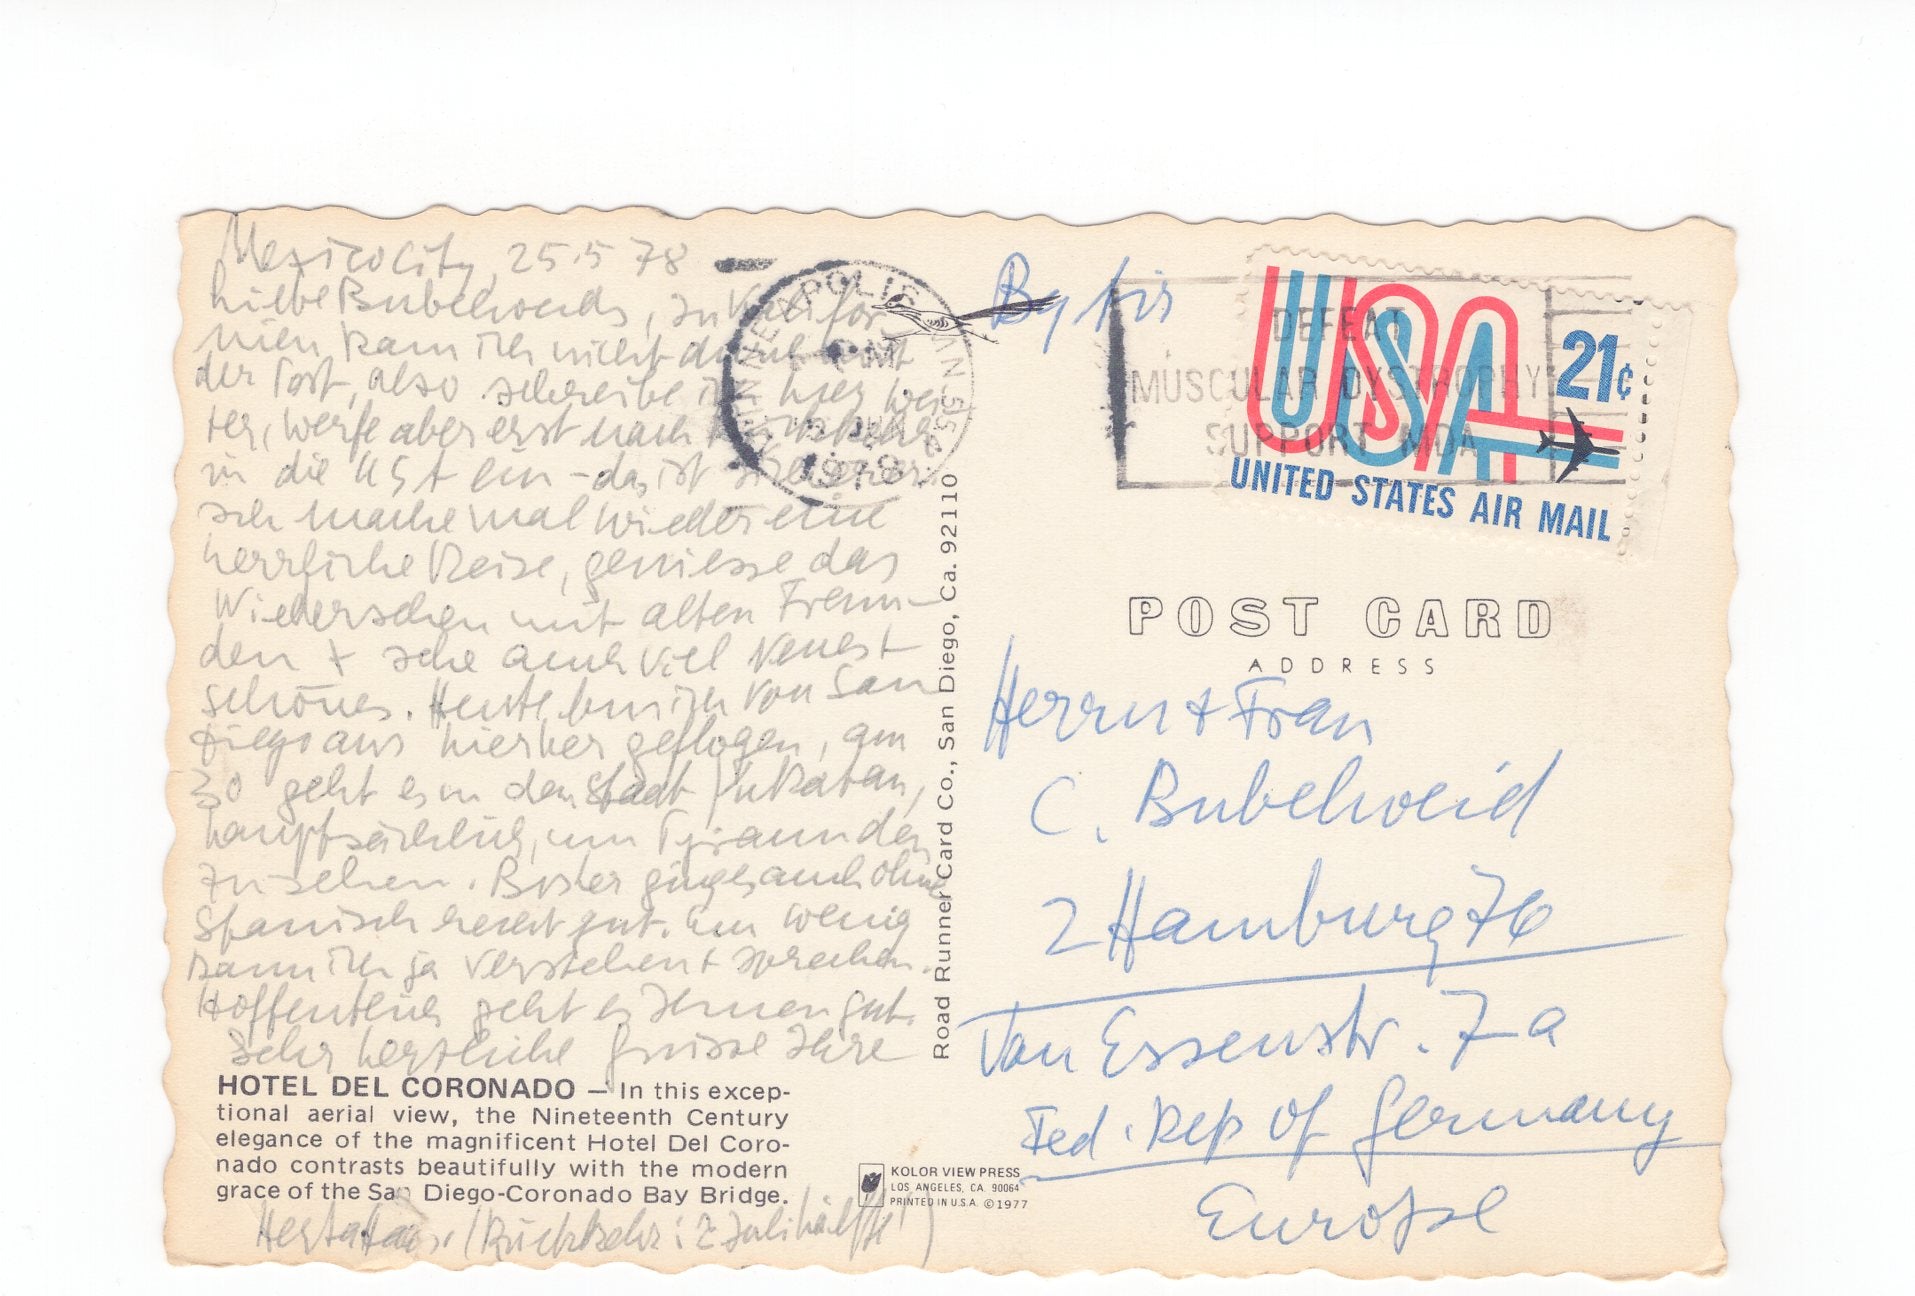 Mexico City, 25.5 78
Liebe Bubelweids, in Kalifor-
nien kam ich nicht
der Post, also schreibe ich hier wei-
ter, werfe aber erst nach
in die USA ein – das ist sicherer.
Ich mache mal wieder eine
herrliche Reise, geniesse das
Wiedersehen mit alten Freun-
den + sehe auch viel Neues +
schönes. Heute bin ich von San
Diego aus hierher geflogen, am
30 geht es in den Staat Yukatan,
hauptsächlich, um Pyramiden
zu sehen. Bisher ging es auch ohne
Spanisch recht gut. Ein wenig
kann ich ja verstehen + sprechen.
Hoffentlich geht es Ihnen gut.
Sehr herzliche Grüsse Ihre
HOTEL DEL CORONADO — In this excep-
tional aerial view, the Nineteenth Century
elegance of the magnificent Hotel Del Coro-
nado contrasts beautifully with the modern
grace of the San Diego-Coronado Bay Bridge.
Herta (Rückkehr: 2 Julihälfte!)
Road Runner Card Co., San Diego, Ca. 92110
KOLOR VIEW PRESS
LOS ANGELES, CA. 90064
PRINTED IN U.S.A. © 1977
MINNEAPOLIS
PM
1978
By Air
DEFEAT
MUSCULAR DYSTROPHY
SUPPORT MDA
USA
21¢
UNITED STATES AIR MAIL
POST CARD
ADDRESS
Herrn + Frau
C. Bubelweid
2 Hamburg 76
Van Essenstr. 7a
Fed. Rep of Germany
Europe